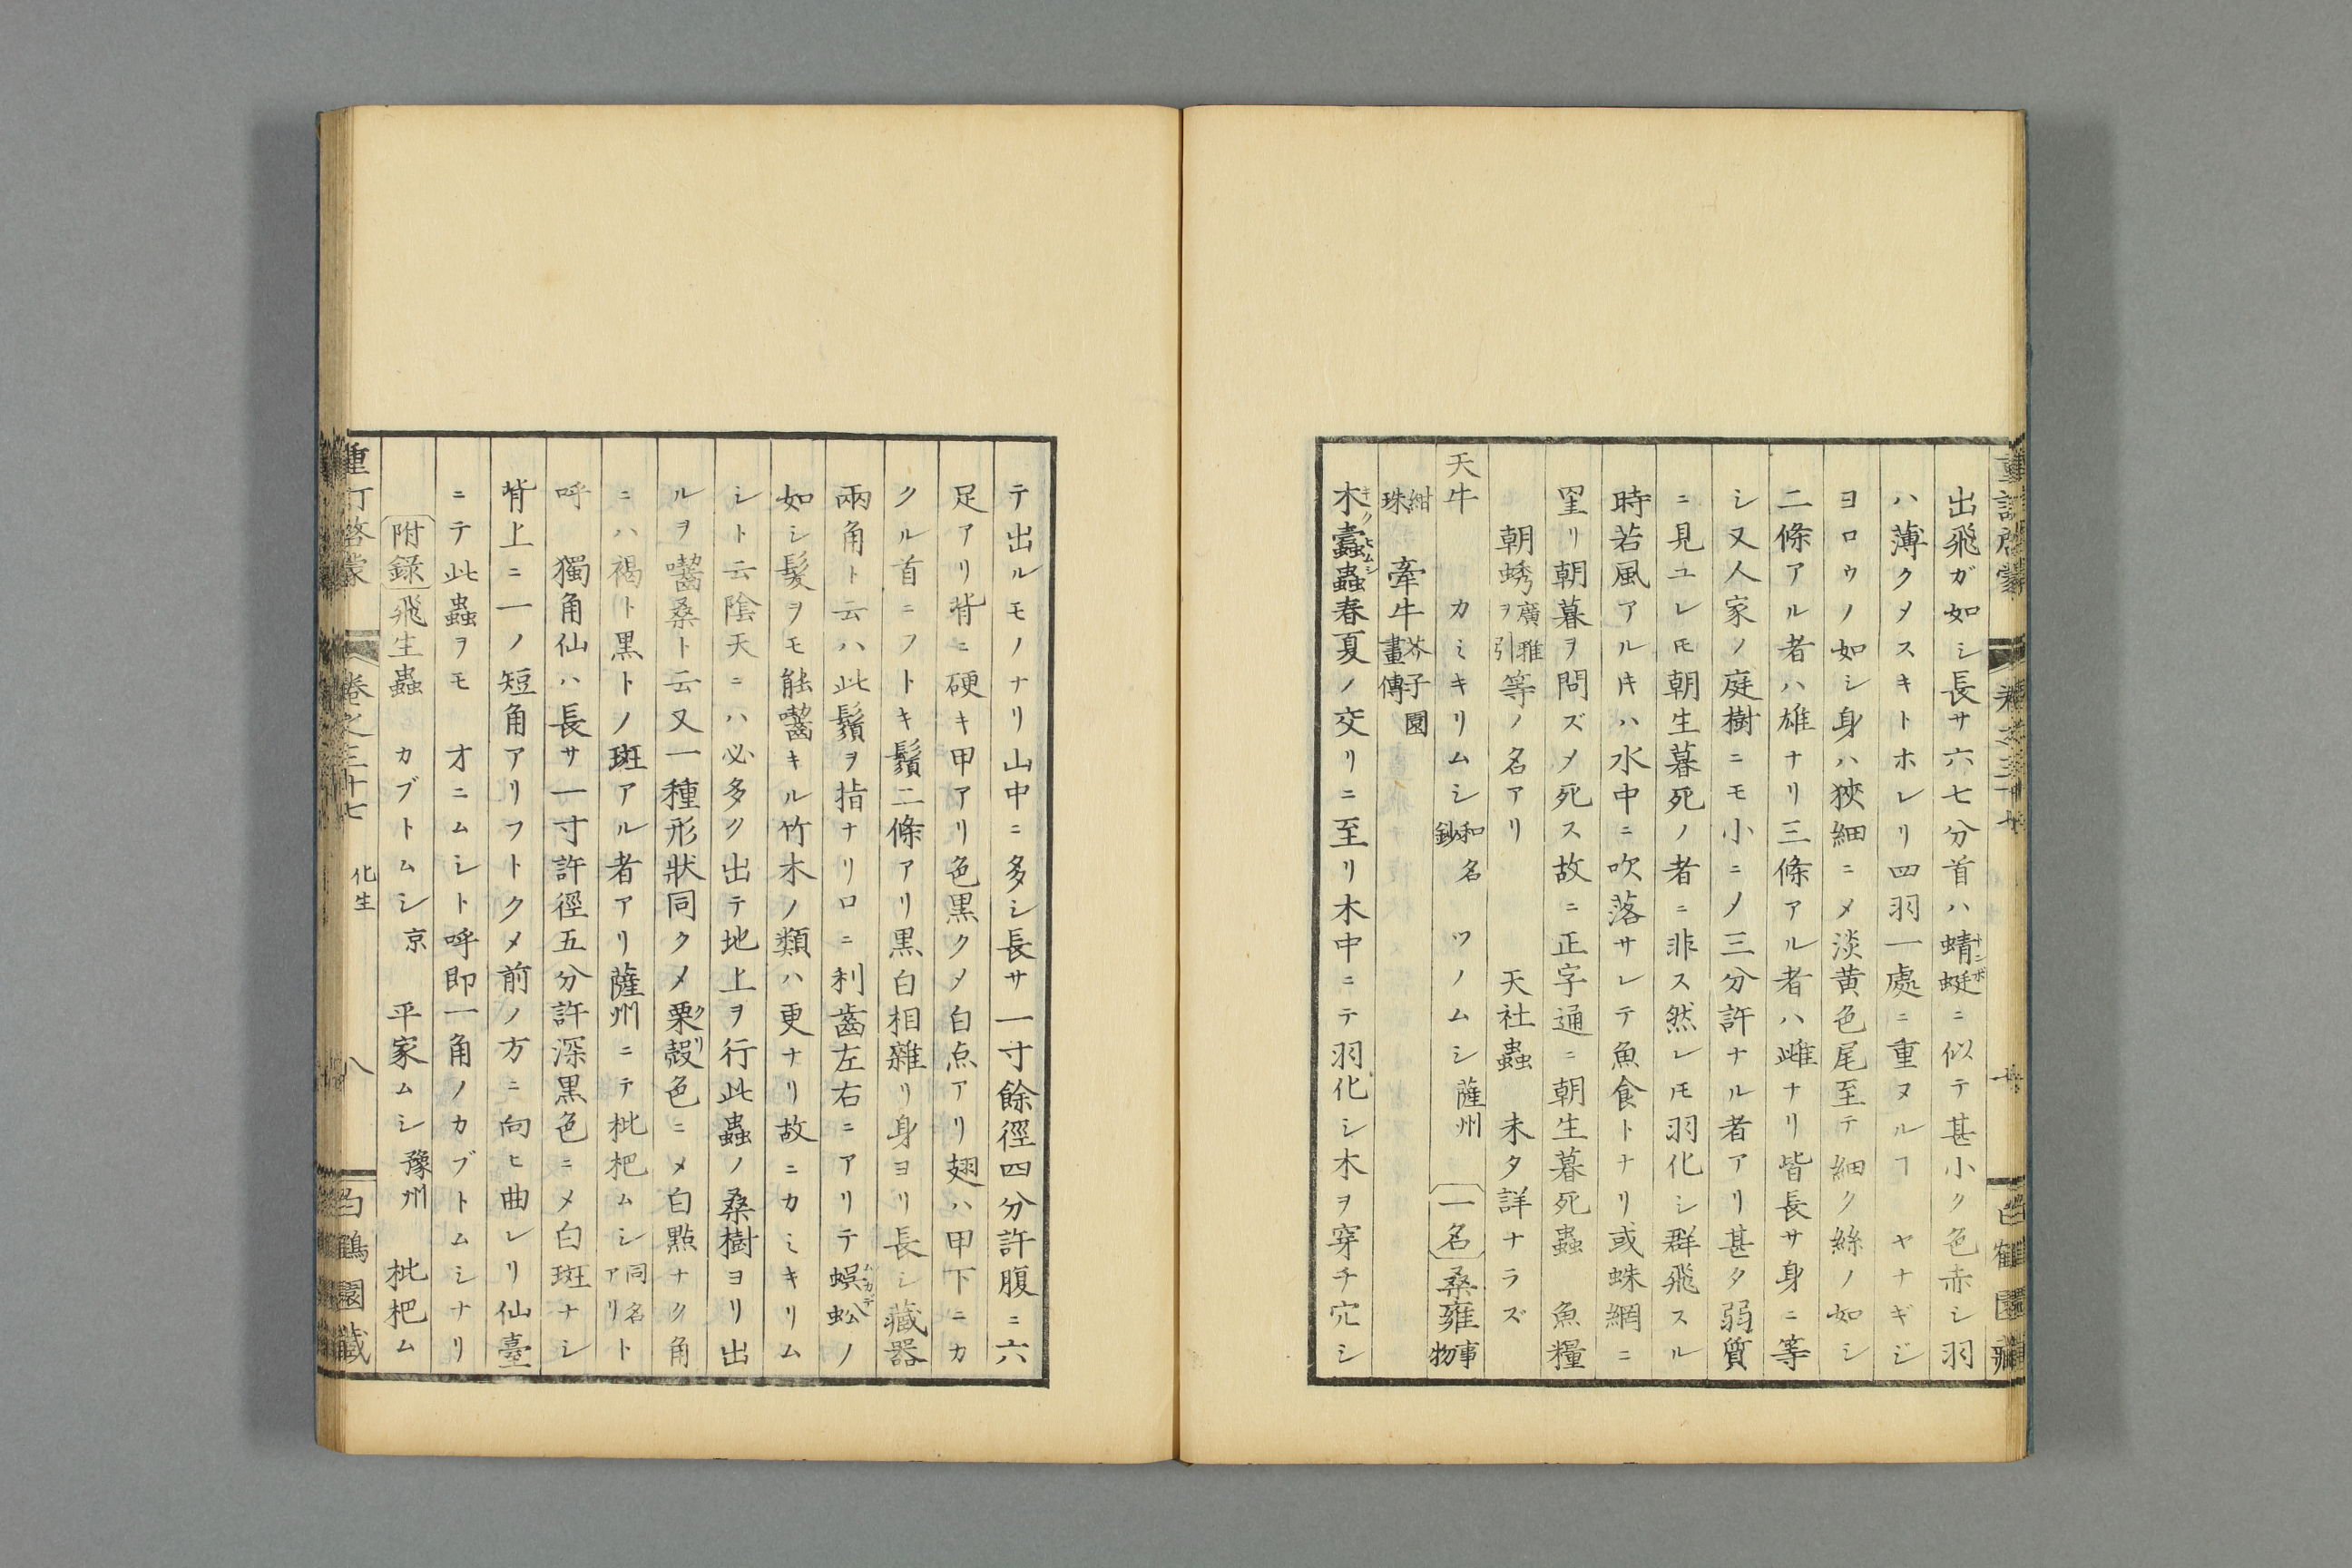 出飛ガ如シ長サ六七分首ハ蜻蜓トンボニ似テ甚小ク色赤シ羽
ハ薄クメスキトホレリ四羽一處ニ重ヌルヿヤナギジ
ヨロウノ如シ身ハ狹細ニメ淡黄色尾至テ細ク絲ノ如シ
二條アル者ハ雄ナリ三條アル者ハ雌ナリ皆長サ身ニ等
シ又人家ノ庭樹ニモ小ニノ三分許ナル者アリ甚タ弱質
ニ見ユレㇳモ朝生暮死ノ者ニ非ス然レㇳモ羽化シ群飛スル
時若風アルㇳキハ水中ニ吹落サレテ魚食トナリ或蛛網ニ
罣リ朝暮ヲ問ズメ死ス故ニ正字通ニ朝生暮死蟲 魚糧
朝蜏廣雅ヲ引等ノ名アリ 天社蟲 未タ詳ナラズ
天牛 カミキリムシ和名鈔 ツノムシ薩州 一名桑雍事物
紺珠 牽牛芥子園畫傳
木蠹蟲キクヒムシ春夏ノ交リニ至リ木中ニテ羽化シ木ヲ穿チ穴シ
テ出ルモノナリ山中ニ多シ長サ一寸餘徑四分許腹ニ六
足アリ背ニ硬キ甲アリ色黒クメ白点アリ翅ハ甲下ニカ
クル首ニフトキ鬚二條アリ黒白相雜リ身ヨリ長シ藏器
兩角ト云ハ此鬚ヲ指ナリロニ利齒左右ニアリテ蜈蚣ムカデノ
如シ髮ヲモ能齧キル竹木ノ類ハ更ナリ故ニカミキリム
シト云陰天ニハ必多ク出テ地上ヲ行此蟲ノ桑樹ヨリ出
ルヲ齧桑ト云又一種形狀同クメ栗殼クリ色ニメ白點ナク角
ニハ褐ト黒トノ斑アル者アリ薩州ニテ枇杷ムシ同名アリト
呼 獨角仙ハ長サ一寸許徑五分許深黒色ニメ白斑ナシ
背上ニ一ノ短角アリフトクメ前ノ方ニ向ヒ曲レリ仙臺
ニテ此蟲ヲモ オニムシト呼即一角ノカブトムシナリ
附錄飛生蟲 カブトムシ京 平家ムシ豫州 枇杷ム
重訂啓蒙 卷之三十七 化生 八 白鶴園藏